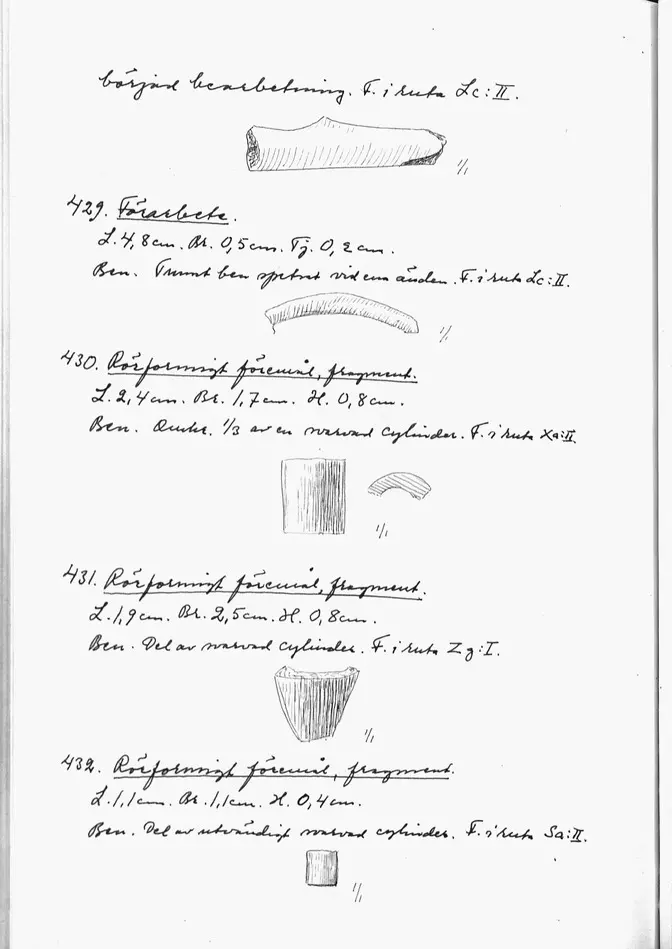 börjad bearbetning. F. i ruta Lc:II.
1/1
429. Förarbete.
L. 4,8cm. Br. 0,5cm. Tj. 0,2cm.
Ben. Tunnt ben spetsat vid ena änden. F. i ruta Lc:II.
1/1
430. Rörformigt föremål, fragment.
L. 2,4cm. Br. 1,7cm. H. 0,8cm.
Ben. 1/3 av en svarvad cylinder. F. i ruta Xa:II.
1/1
431. Rörformigt föremål, fragment.
L. 1,9cm. Br. 2,5cm. H. 0,8cm.
Ben. Del av svarvad cylinder. F. i ruta Zg:I.
1/1
432. Rörformigt föremål, fragment.
L. 1,1cm. Br. 1,1cm. H. 0,4cm.
Ben. Del av utvändigt svarvad cylinder. F. i ruta Sa:II.
1/1